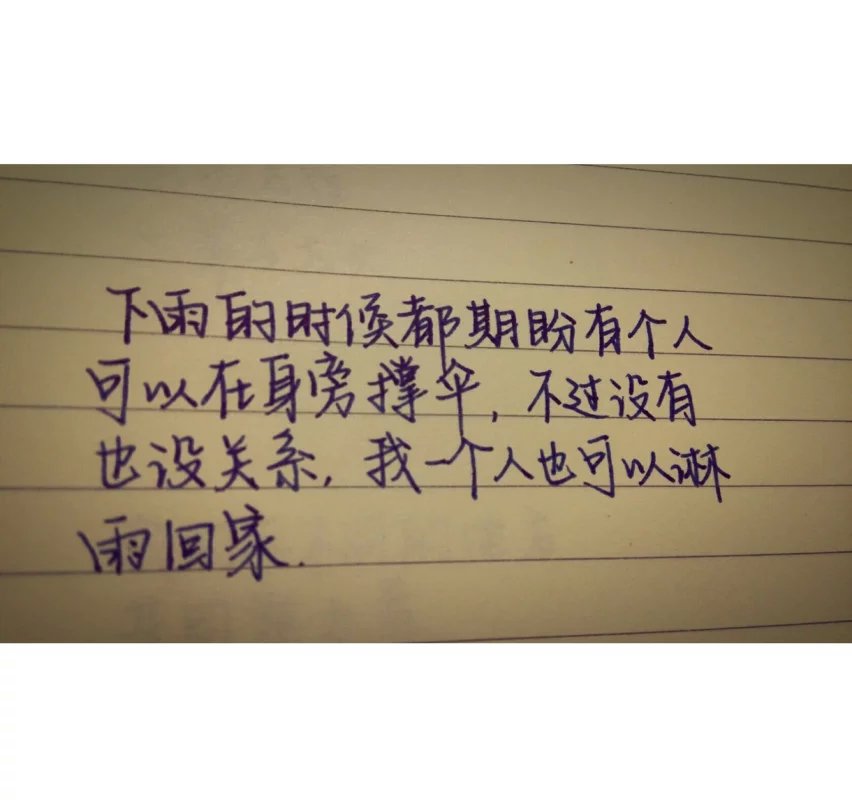 下雨的时候都期盼有个人
可以在身旁撑伞,不过没有
也没关系,我一个人也可以淋
雨回家.